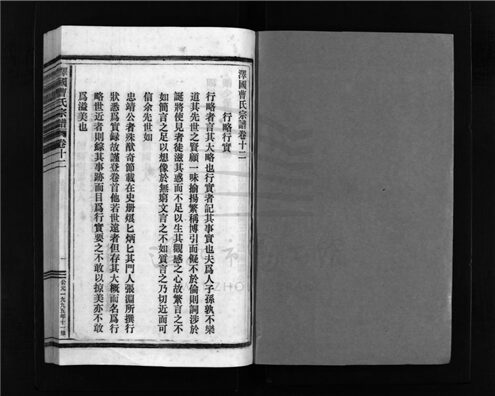 澤國曹氏宗譜卷十二
行略行實
行略者言其大略也行實者記其事實也夫爲人子孫孰不樂
道其先世之賢顧一味揄揚繁稱博引而儗不於倫則詞涉於
誕將使見者徒滋其惑而不足以生其觀感之心故繁言之不
如簡言之足以想像於無窮文言之不如質言之乃切近而可
信余先世如
忠靖公者殊猷奇節載在史册熿匕炳匕其門人張淵所撰行
狀悉爲實録故謹登卷首他若世遠者但存其大概而名爲行
略世近者則綜其事跡而目爲行實要之不敢以掠美亦不敢
爲溢美也
澤國曹氏宗譜
卷十二
一
公元一九九五年十一修